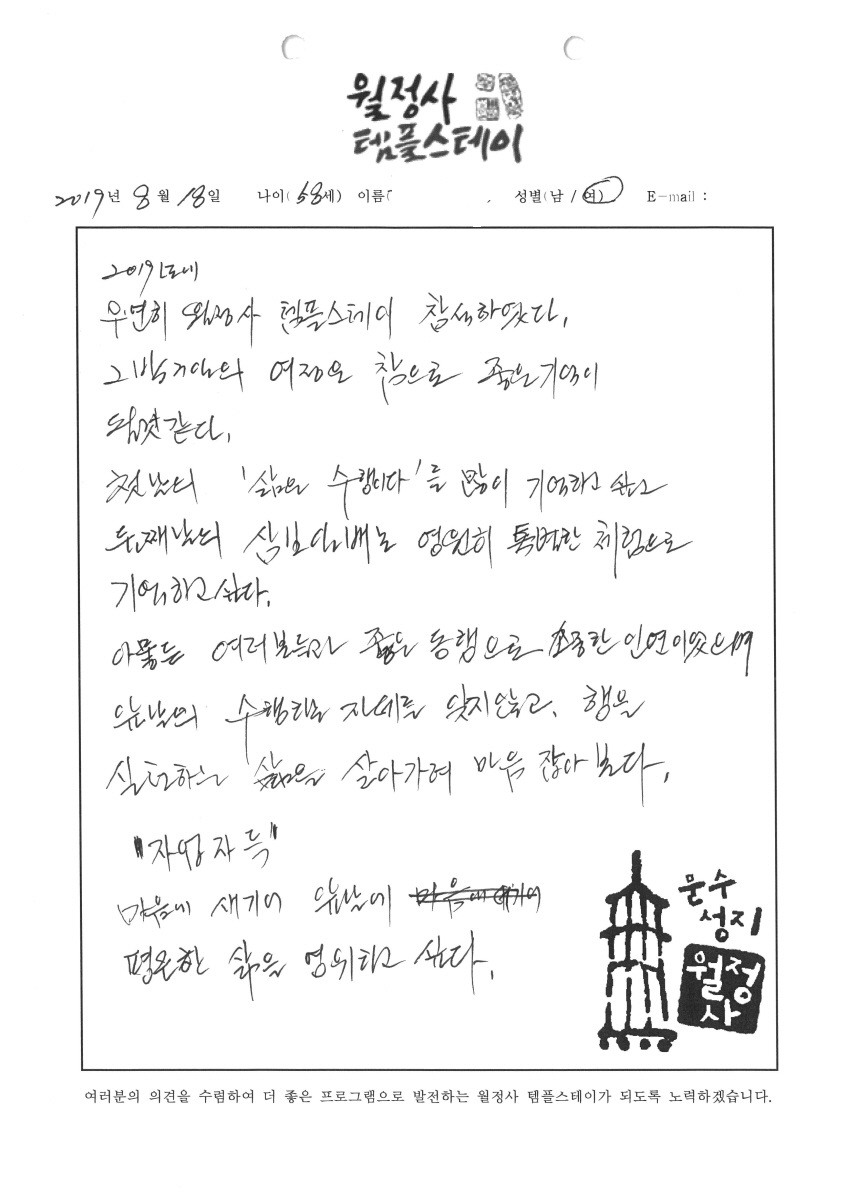 월정사
템플스테이
2019년 8월 18일 나이(58세) 이름( 성별(남 / 여) E-mail :
2019년에
우연히 월정사 템플스테이 참석하였다.
그 여정은 참으로 좋은기억이
될것같다.
첫날의 '삶은 수행이다'를 많이 기억하고 싶고
두째날의 삼보일배는 영원히 특별한 체험으로
기억하고싶다.
아뭏든 여러분들과 좋은 동행으로 소중한 인연이었으며
훗날의 수행하는 자세를 잊지않고, 행을
실천하는 삶을 살아가려 마음 잡아 본다.
"자업자득"
마음에 새기어 훗날에 마음에 새기어
평온한 삶을 영위하고 싶다.
문수
성지
월정
사
여러분의 의견을 수렴하여 더 좋은 프로그램으로 발전하는 월정사 템플스테이가 되도록 노력하겠습니다.